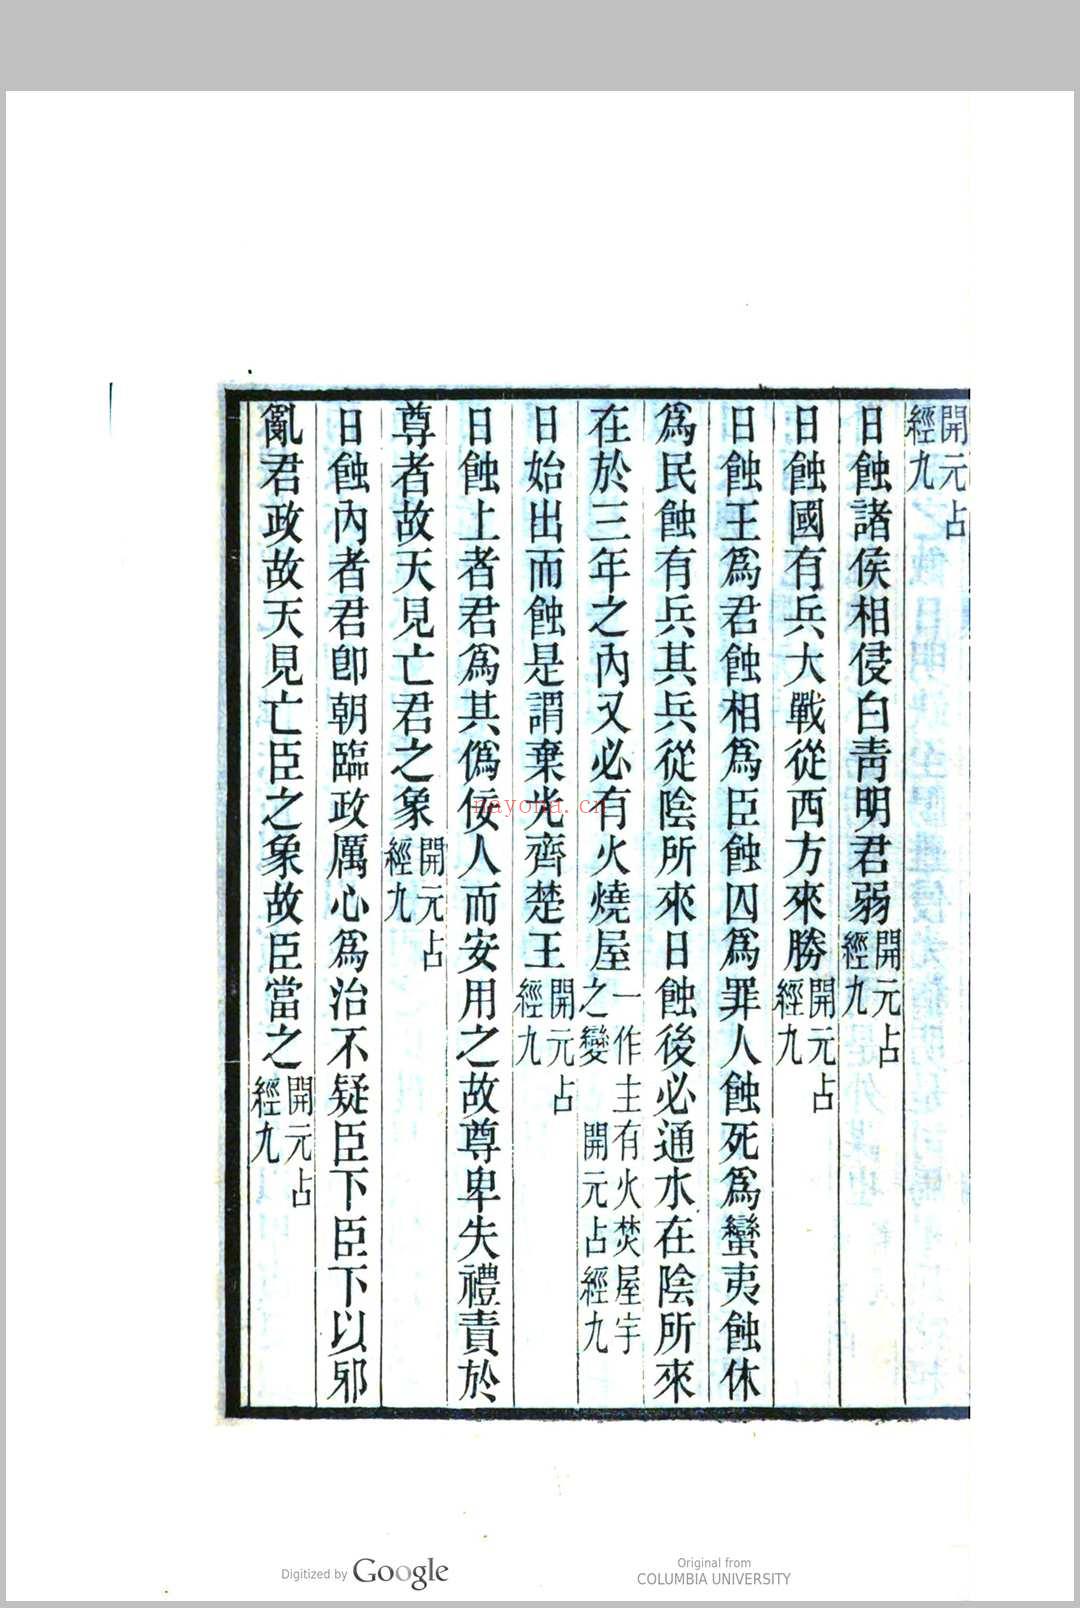 開元占
經九
日蝕諸侯相侵白青明君弱開元占經九
日蝕國有兵大戰從西方來勝開元占經九
日蝕王爲君蝕相爲臣蝕囚爲罪人蝕死爲蠻夷蝕休
爲民蝕有兵其兵從陰所來日蝕後必通水在陰所來
在於三年之內又必有火燒屋一作主有火焚屋宇之變 開元占經九
日始出而蝕是謂棄光齊楚王開元占經九
日蝕上者君爲其僞佞人而安用之故尊卑失禮責於
尊者故天見亡君之象開元占經九
日蝕內者君卽朝臨政厲心爲治不疑臣下臣下以邪
亂君政故天見亡臣之象故臣當之開元占經九
nayona.cn
Digitized by Google
Original from
COLUMBIA UNIVERSITY